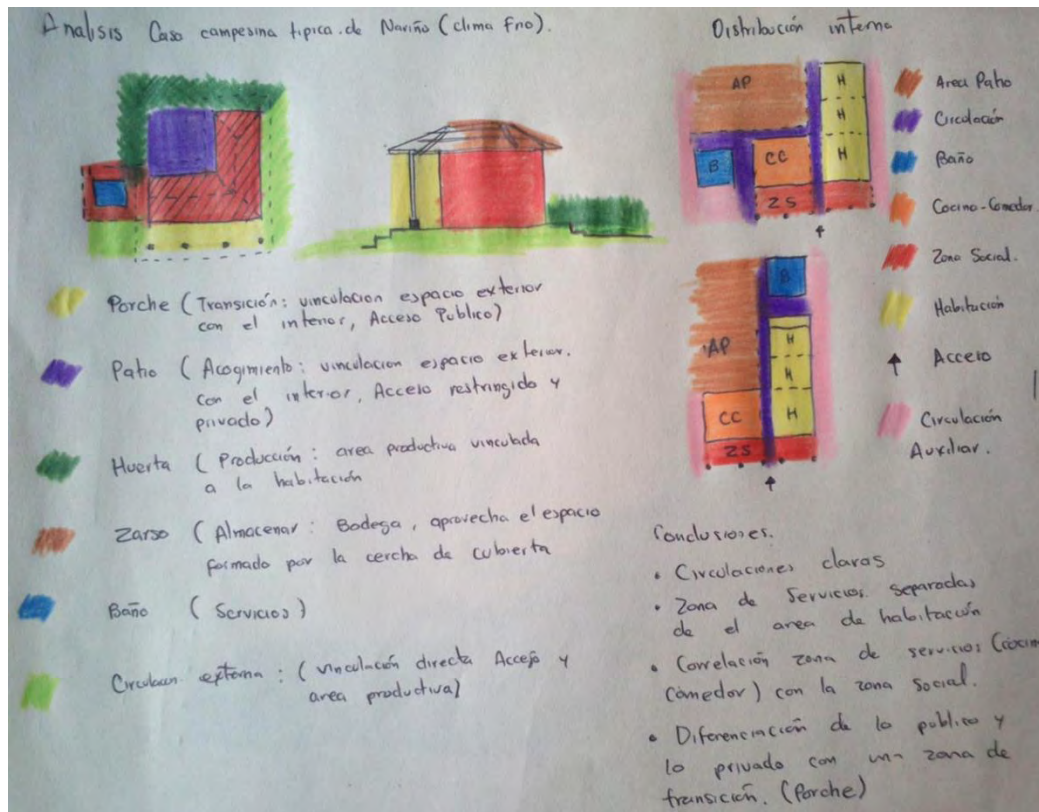 Analisis Casa campesina tipica de Nariño (clima frio).
Porche (Transición: vinculacion espacio exterior
con el interior, Acceso Publico)
Patio (Acogimiento: vinculacion espacio exterior.
con el interior, Acceso restringido y
privado)
Huerta (Producción: area productiva vinculada
a la habitación
Zarso (Almacenar: Bodega, aprovecha el espacio
formado por la cercha de cubierta
Baño (Servicios)
Circulacion externa: (vinculación directa Acceso y
area productiva)
Distribución interna
AP
H
H
H
B
CC
ZS
B
AP
H
H
H
CC
ZS
Area Patio
Circulación
Baño
Cocina-Comedor
Zona Social.
Habitación
Acceso
Circulación
Auxiliar.
Conclusiones.
• Circulaciones claras
• Zona de Servicios separadas
de el area de habitación
• Correlación zona de servicios (cocin
comedor) con la zona social.
• Diferenciación de lo publico y
lo privado con una zona de
transición. (Porche)